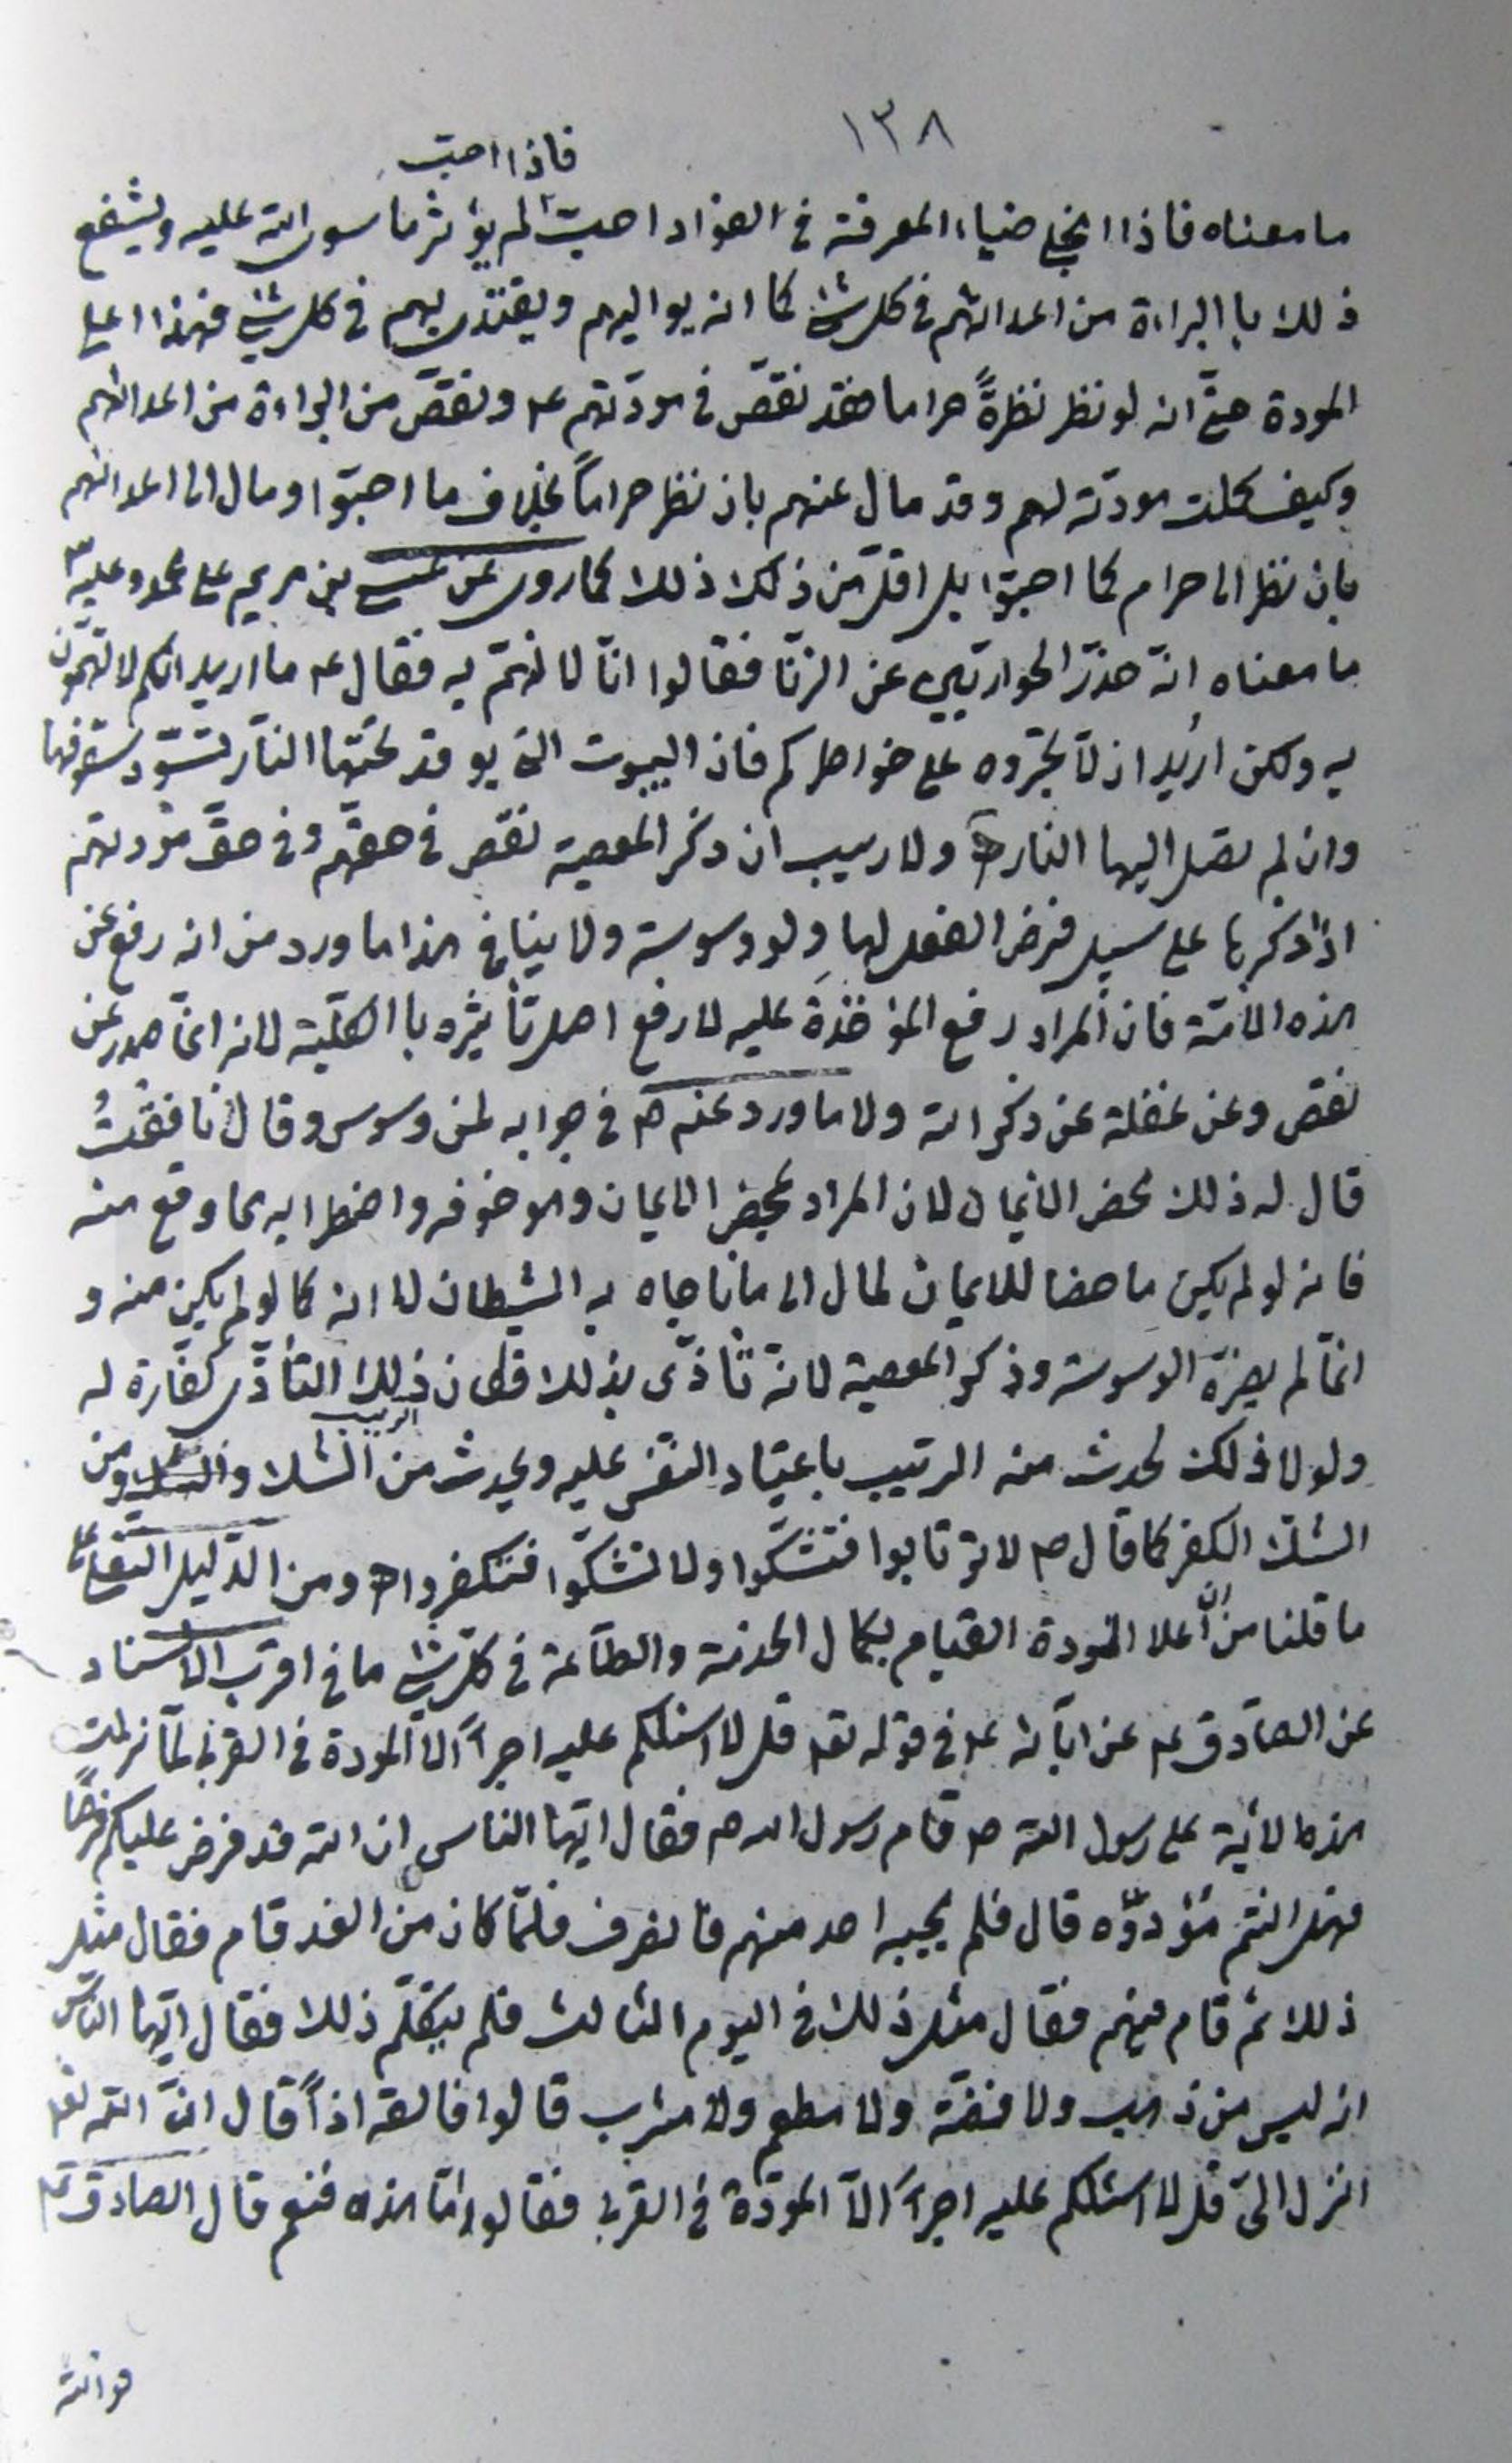 ١٣٨
فاذا احبّ
ما معناه فاذا انجلى ضياء المعرفة في الفؤاد احبّ لم يؤثر ما سوى الله عليه ويشفع
ذلك با البراءة من اعدائهم في كل شئ كما انه يواليهم ويقتدى بهم في كل شئ فهذا اعلى
المودة حتى انه لو نظر نظرةً حراما فقد نقص في مودّتهم ع ونقص من البراءة من اعدائهم
وكيف كملت مودته لهم وقد مال عنهم بان نظر حراماً بخلاف ما احبّوا ومال الى اعدائهم
بان نظر الى حرام كما احبّوا بل اقلّ من ذلك ذلك كما روى عن عيسى بن مريم على محمد وعليه
ما معناه انّه حذّر الحواريّين عن الزّنا فقالوا انّا لا نهمّ به فقال ع ما اريد انكم لا تهمّون
به ولكن اريد ان لا تجرّوه على خواطركم فان البيوت التى يوقد تحتها النّار تسّود سقوفها
وان لم تصل اليها النار ولا ريب ان ذكر المعصية نقص في حقهم وفي حقّ مودتهم
اذا ذكرها على سبيل فرض الفعل لها ولو وسوسة ولا ينافى هذا ما ورد من انه رفع عن
هذه الامّة فان المراد رفع المؤخذة عليه لا رفع اصل تأثيره با الكليّة لانه انّما صدر عن
نقص وعن غفلة عن ذكر الله ولا ما ورد عنه ص في جوابه لمن وسوس وقال نافقتُ
قال له ذلك محض الايمان لان المراد بمحض الايمان وهو خوفه واضطرابه مما وقع منه
فانه لو لم يكن ما حضا للايمان لمال الى ما ناجاه به الشيطان لا انه كما لو لم يكن منه و
انّما لم يضرّه الوسوسة وذكر المعصية لانّه تأذّى بذلك فكان ذلك التأذّى كفّارة له
الريب
ولولا ذلك لحدث منه الريب باعتياد النفس عليه ويحدث من الشك ومن
الشكّ الكفر كما قال ص لا ترتابوا فتشكّوا ولا تشكّوا فتكفروا ومن الدّليل النقلى على
ما قلنا من أنّ أعلا المودة القيام بكمال الخدمة والطّاعة في كلّ شئ ما في اقرب الاسناد
عن الصّادق ع عن ابائه ع في قوله تع قل لا اسئلكم عليه اجراً الّا المودة في القربى لمّا نزلت
هذه الاية على رسول الله ص قام رسول الله ص فقال ايّها الناس ان الله قد فرض عليكم فرضاً
فهل انتم مؤدّوه قال فلم يجبه احد منهم فانصرف فلمّا كان من الغد قام فقال مثل
ذلك ثم قام فيهم فقال مثل ذلك في اليوم الثالث فلم يتكلّم ذلك فقال ايّها النّاس
انه ليس من ذهب ولا فضّة ولا مطعم ولا مشرب قالوا فالقه اذاً قال انّ الله تع
انزل الىّ قل لا اسئلكم عليه اجراً الّا المودّة في القربى فقالوا امّا هذه فنعم قال الصادق ع
فوالله